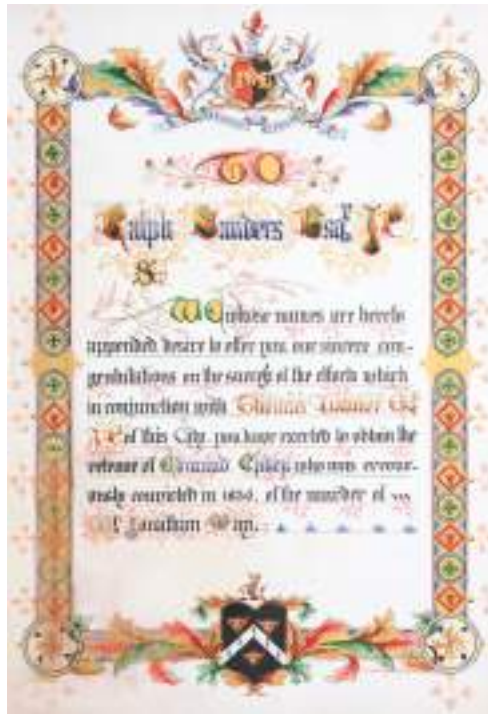 TO
Ralph Sanders Esqr. JP
We whose names are hereto
appended, desire to offer you, our sincere con-
gratulations on the success of the efforts which
in conjunction with Thomas
of this City, you have exerted to obtain the
release of Edmund Galley who was errone-
ously convicted in 1836, of the murder of
Mr. Jonathan May.